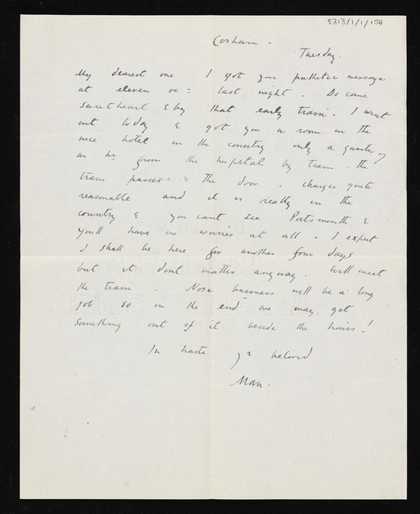 5313/1/1/154
Cosham.
Tuesday.
My dearest one I got your pathetic message
at eleven oc: last night. Do come
sweetheart & by that early train. I went
out today & got you a room in the
nice hotel in the country only a quarter of
an hr from the hospital by tram. the
tram passes the door. charges quite
reasonable and it is really in the
country & you cant see Portsmouth &
you'll have no worries at all. I expect
I shall be here for another four days
but it dont matter anyway. Will meet
the train. Nose business will be a long
job so in the end we may get
something out of it beside the !
In haste yr beloved
Man.